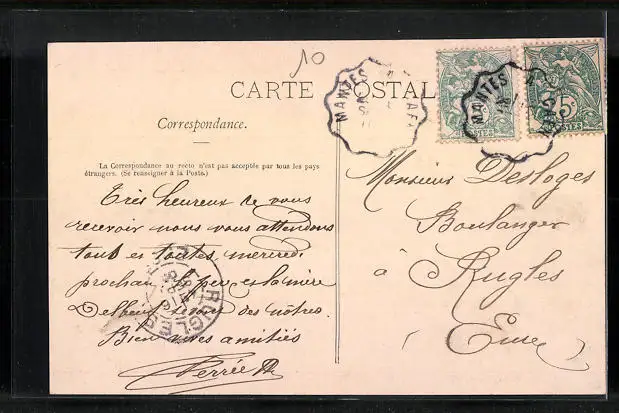 10
CARTE POSTALE
MANTES
MANTES
5c
POSTES
Correspondance.
La Correspondance au recto n'est pas acceptée par tous les pays
étrangers. (Se renseigner à la Poste.)
Très heureux de vous
recevoir nous vous attendons
tous et toutes, mercredi
prochain le père et la mère
seront des nôtres.
Bien vives amitiés
Perrée
RUGLES
Monsieur Desloges
Boulanger
à Rugles
Eure